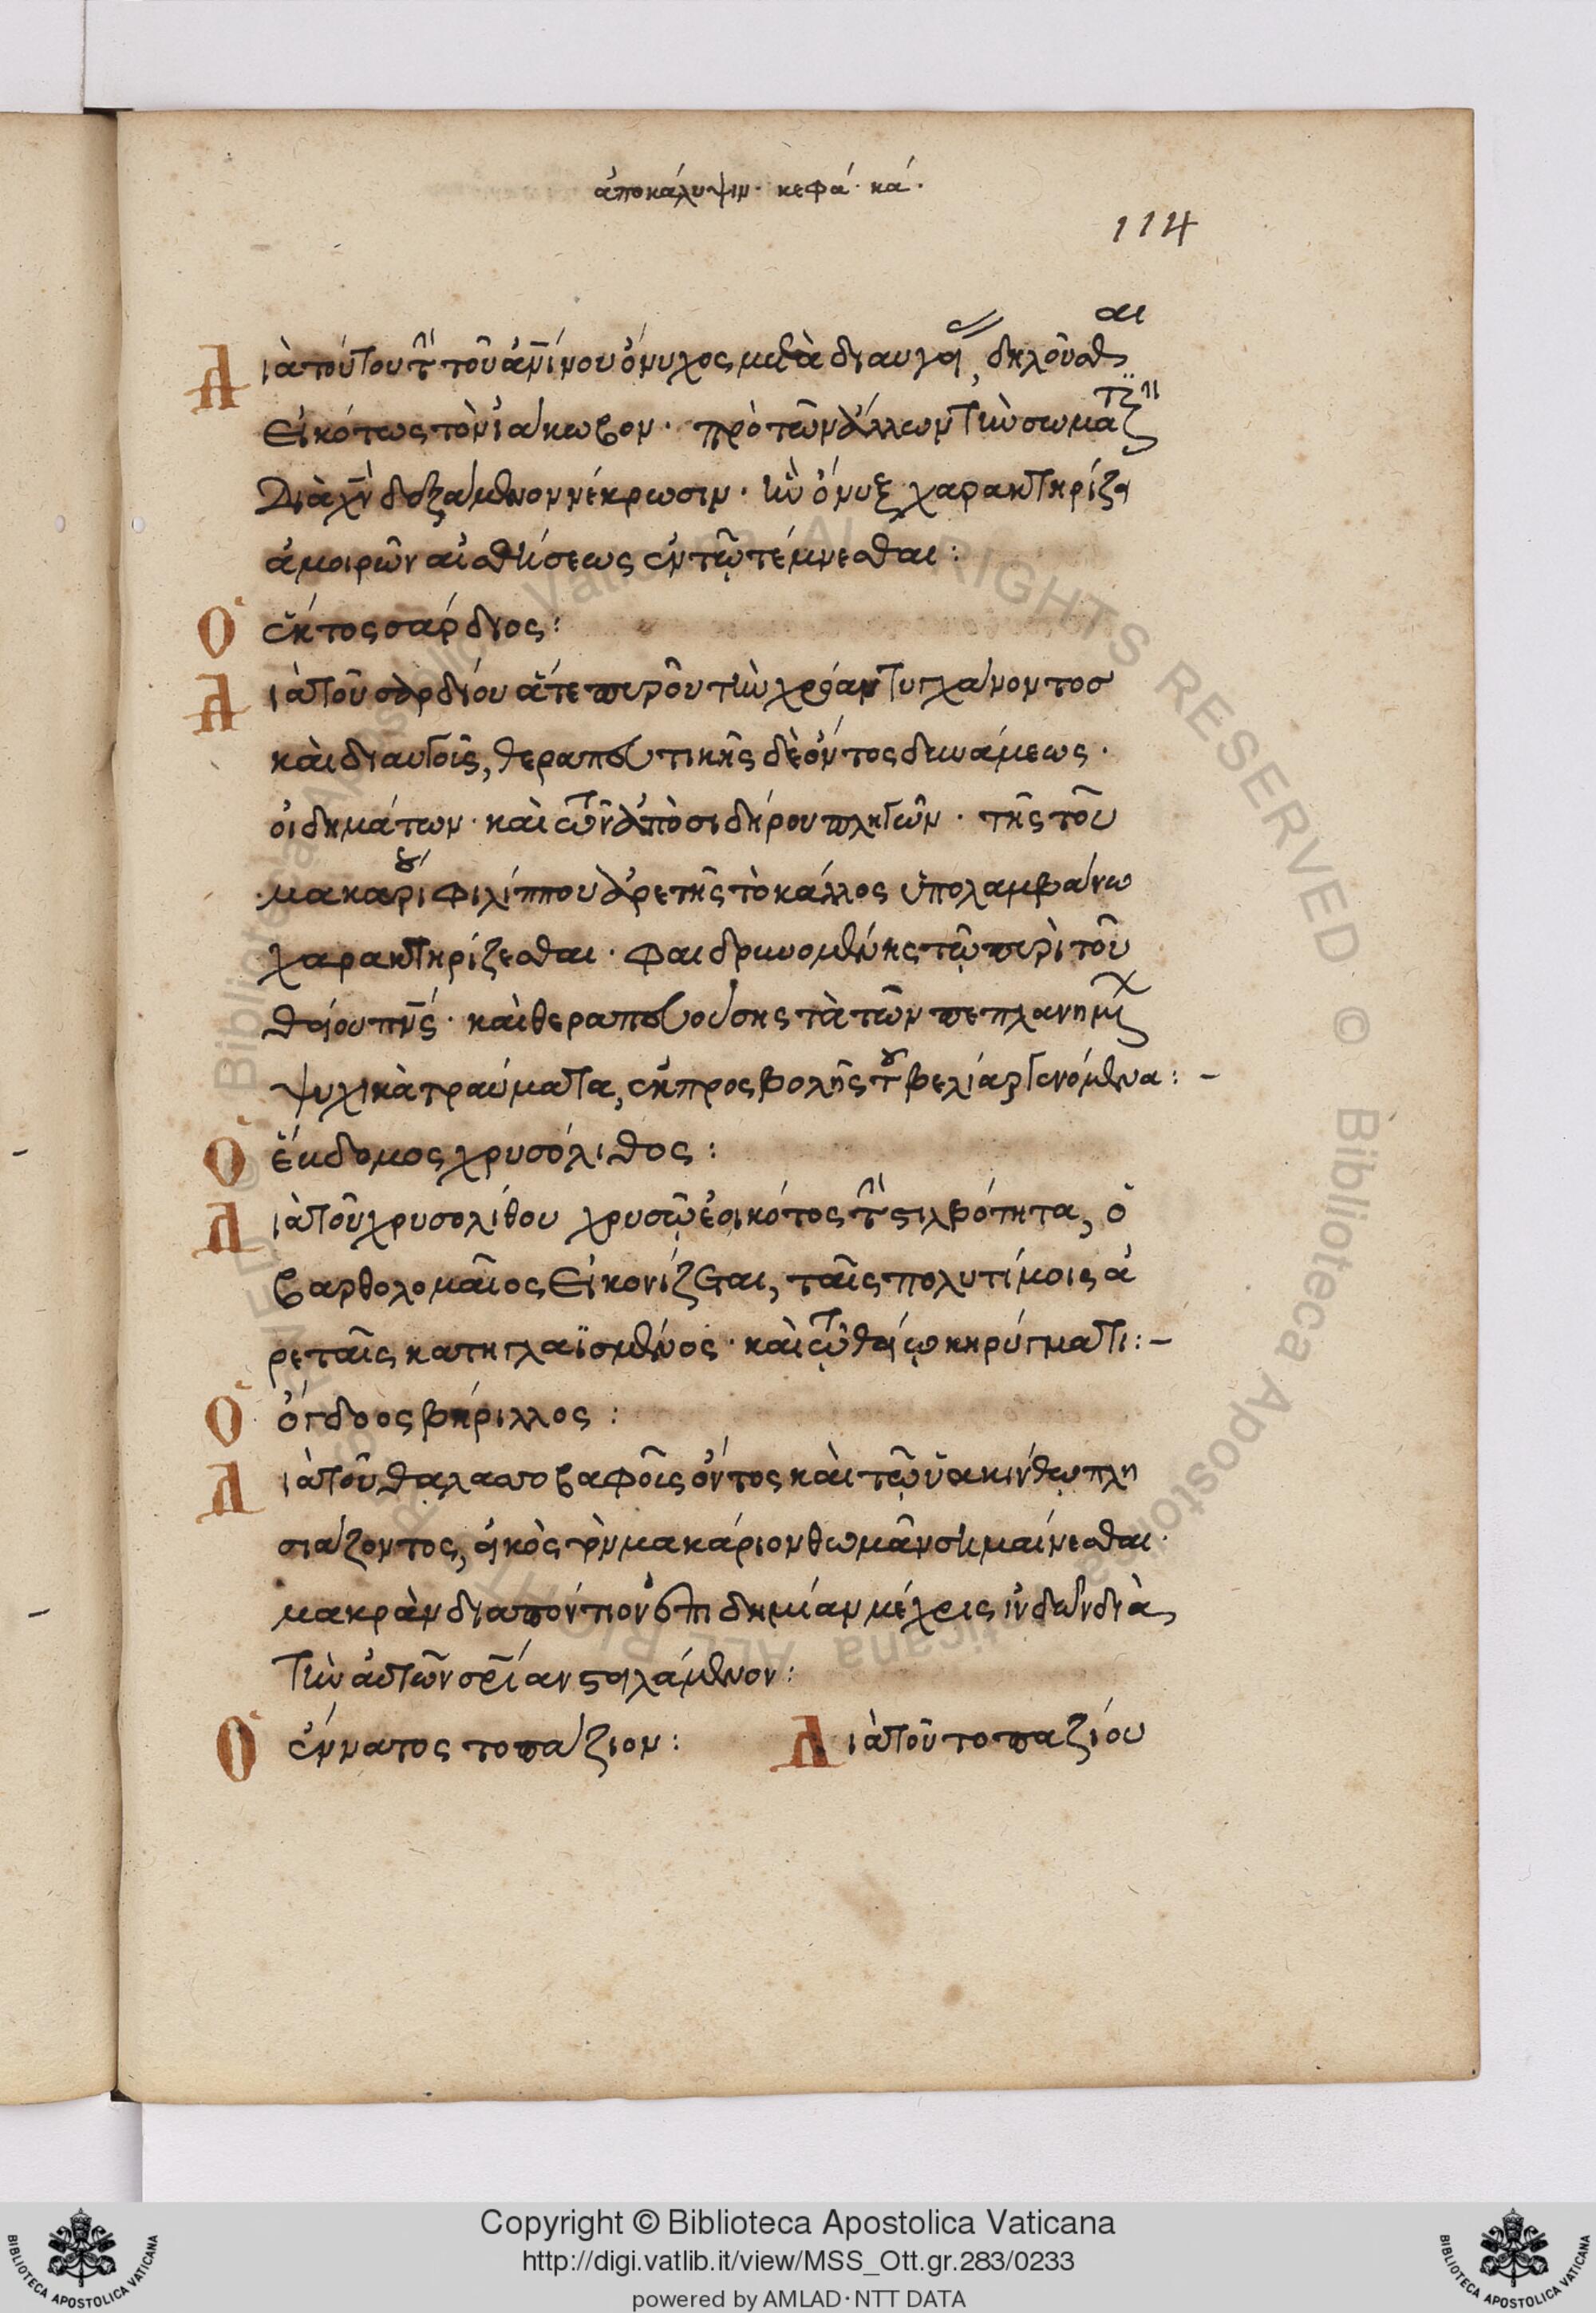 ἀποκάλυψιν· κεφά· κά·
114
Διὰ τούτου τὴν τοῦ ἀνίνου ὄνυχος μετὰ διαυγείας, δηλοῦσθαι
εἰκότως τὸν ἰάκωβον· πρὸ τῶν ἄλλων τὴν σωματικὴν
διὰ χν δεξάμενον νέκρωσιν· ἣν ὁ ὄνυξ χαρακτηρίζει
ἀμοιρῶν αἰσθήσεως ἐν τῷ τέμνεσθαι:
Ὁ ἕκτος σάρδιος:
Διὰ τοῦ σαρδίου ἅτε πυροῦ τὴν χρόαν τυγχάνοντος
καὶ διαυγοῖς, θεραπευτικῆς δὲ ὄντος δυνάμεως·
οἰδημάτων· καὶ τῶν ἀπὸ σιδήρου πληγῶν· τῆς τοῦ
μακαρίου φιλίππου ἀρετῆς τὸ κάλλος ὑπολαμβάνω
χαρακτηρίζεσθαι· φαιδρυνομένης τῷ πυρὶ τοῦ
θείου πνς· καὶ θεραπευούσης τὰ τῶν πεπλανημένων
ψυχικὰ τραύματα, ἐκ προσβολῆς τοῦ βελίαρ γενόμενα:–
Ὁ ἕβδομος χρυσόλιθος:
Διὰ τοῦ χρυσολίθου χρυσῷ ἐοικότος τὴν στιλβότητα, ὁ
βαρθολομαῖος εἰκονίζεται, ταῖς πολυτίμοις ἀ
ρεταῖς κατηγλαϊσμένος· καὶ τῷ θείῳ κηρύγματι:–
Ὁ ὄγδοος βήριλλος:
Διὰ τοῦ θαλασσοβαφοῖς ὄντος καὶ τῷ ὑακίνθῳ πλη
σιάζοντος, εἰκὸς τὸν μακάριον θωμᾶν σημαίνεσθαι·
μακρὰν διαπόντιον ἐπιδημίαν μέχρις ἰνδῶν διὰ
τὴν αὐτῶν σρίαν στειλάμενον:
Ὁ ἔννατος τοπάζιον: Διὰ τοῦ τοπαζίου
Copyright © Biblioteca Apostolica Vaticana
http://digi.vatlib.it/view/MSS_Ott.gr.283/0233
powered by AMLAD·NTT DATA
BIBLIOTECA APOSTOLICA VATICANA
BIBLIOTECA APOSTOLICA VATICANA